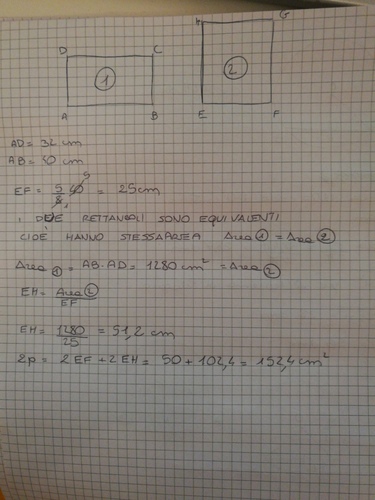 H G
D C
1 2
A B E F
AD = 32 cm
AB = 40 cm
EF = 5/8 40 5 = 25 cm
I DUE RETTANGOLI SONO EQUIVALENTI
CIOÈ HANNO STESSA AREA Area 1 = Area 2
Area 1 = AB · AD = 1280 cm² = Area 2
EH = Area 2 / EF
EH = 1280 / 25 = 51,2 cm
2p = 2EF + 2EH = 50 + 102,4 = 152,4 cm²